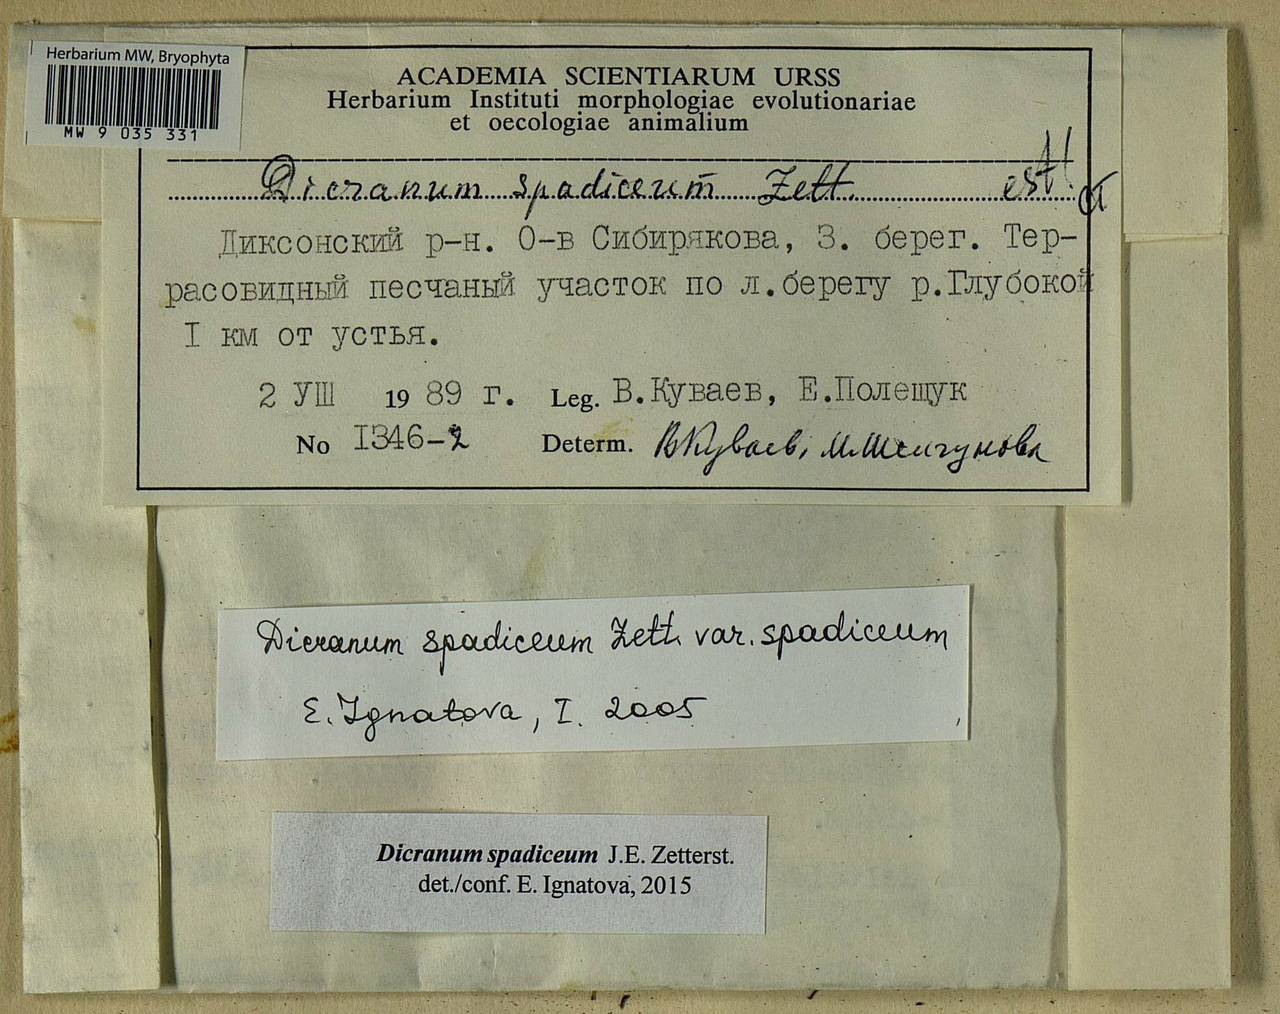 Herbarium MW, Bryophyta
MW 9 035 331
ACADEMIA SCIENTIARUM URSS
Herbarium Instituti morphologiae evolutionariae
et oecologiae animalium
Dicranum spadiceum Zett. est!
Диксонский р-н. О-в Сибирякова, З. берег. Тер-
расовидный песчаный участок по л.берегу р.Глубокой
I км от устья.
2 УШ 19 89 г. Leg. В.Куваев, Е.Полещук
No I346-2 Determ. ВКуваев, М.Шелгунова
Dicranum spadiceum Zett. var. spadiceum
E. Ignatova, I. 2005
Dicranum spadiceum J.E. Zetterst.
det./conf. E. Ignatova, 2015